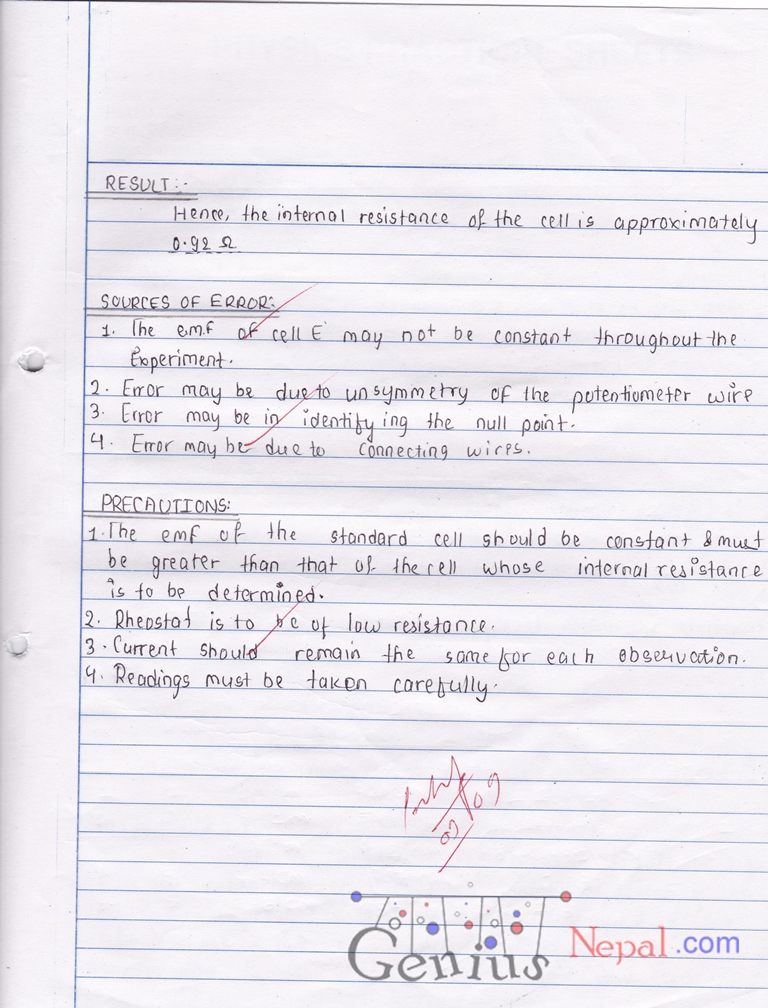 RESULT:-
Hence, the internal resistance of the cell is approximately
0.92 Ω
SOURCES OF ERROR:
1. The emf of cell E may not be constant throughout the
Experiment.
2. Error may be due to unsymmetry of the potentiometer wire
3. Error may be in identifying the null point.
4. Error may be due to connecting wires.
PRECAUTIONS:
1. The emf of the standard cell should be constant & must
be greater than that of the cell whose internal resistance
is to be determined.
2. Rheostat is to be of low resistance.
3. Current should remain the same for each observation.
4. Readings must be taken carefully.
03/09
Genius Nepal.com